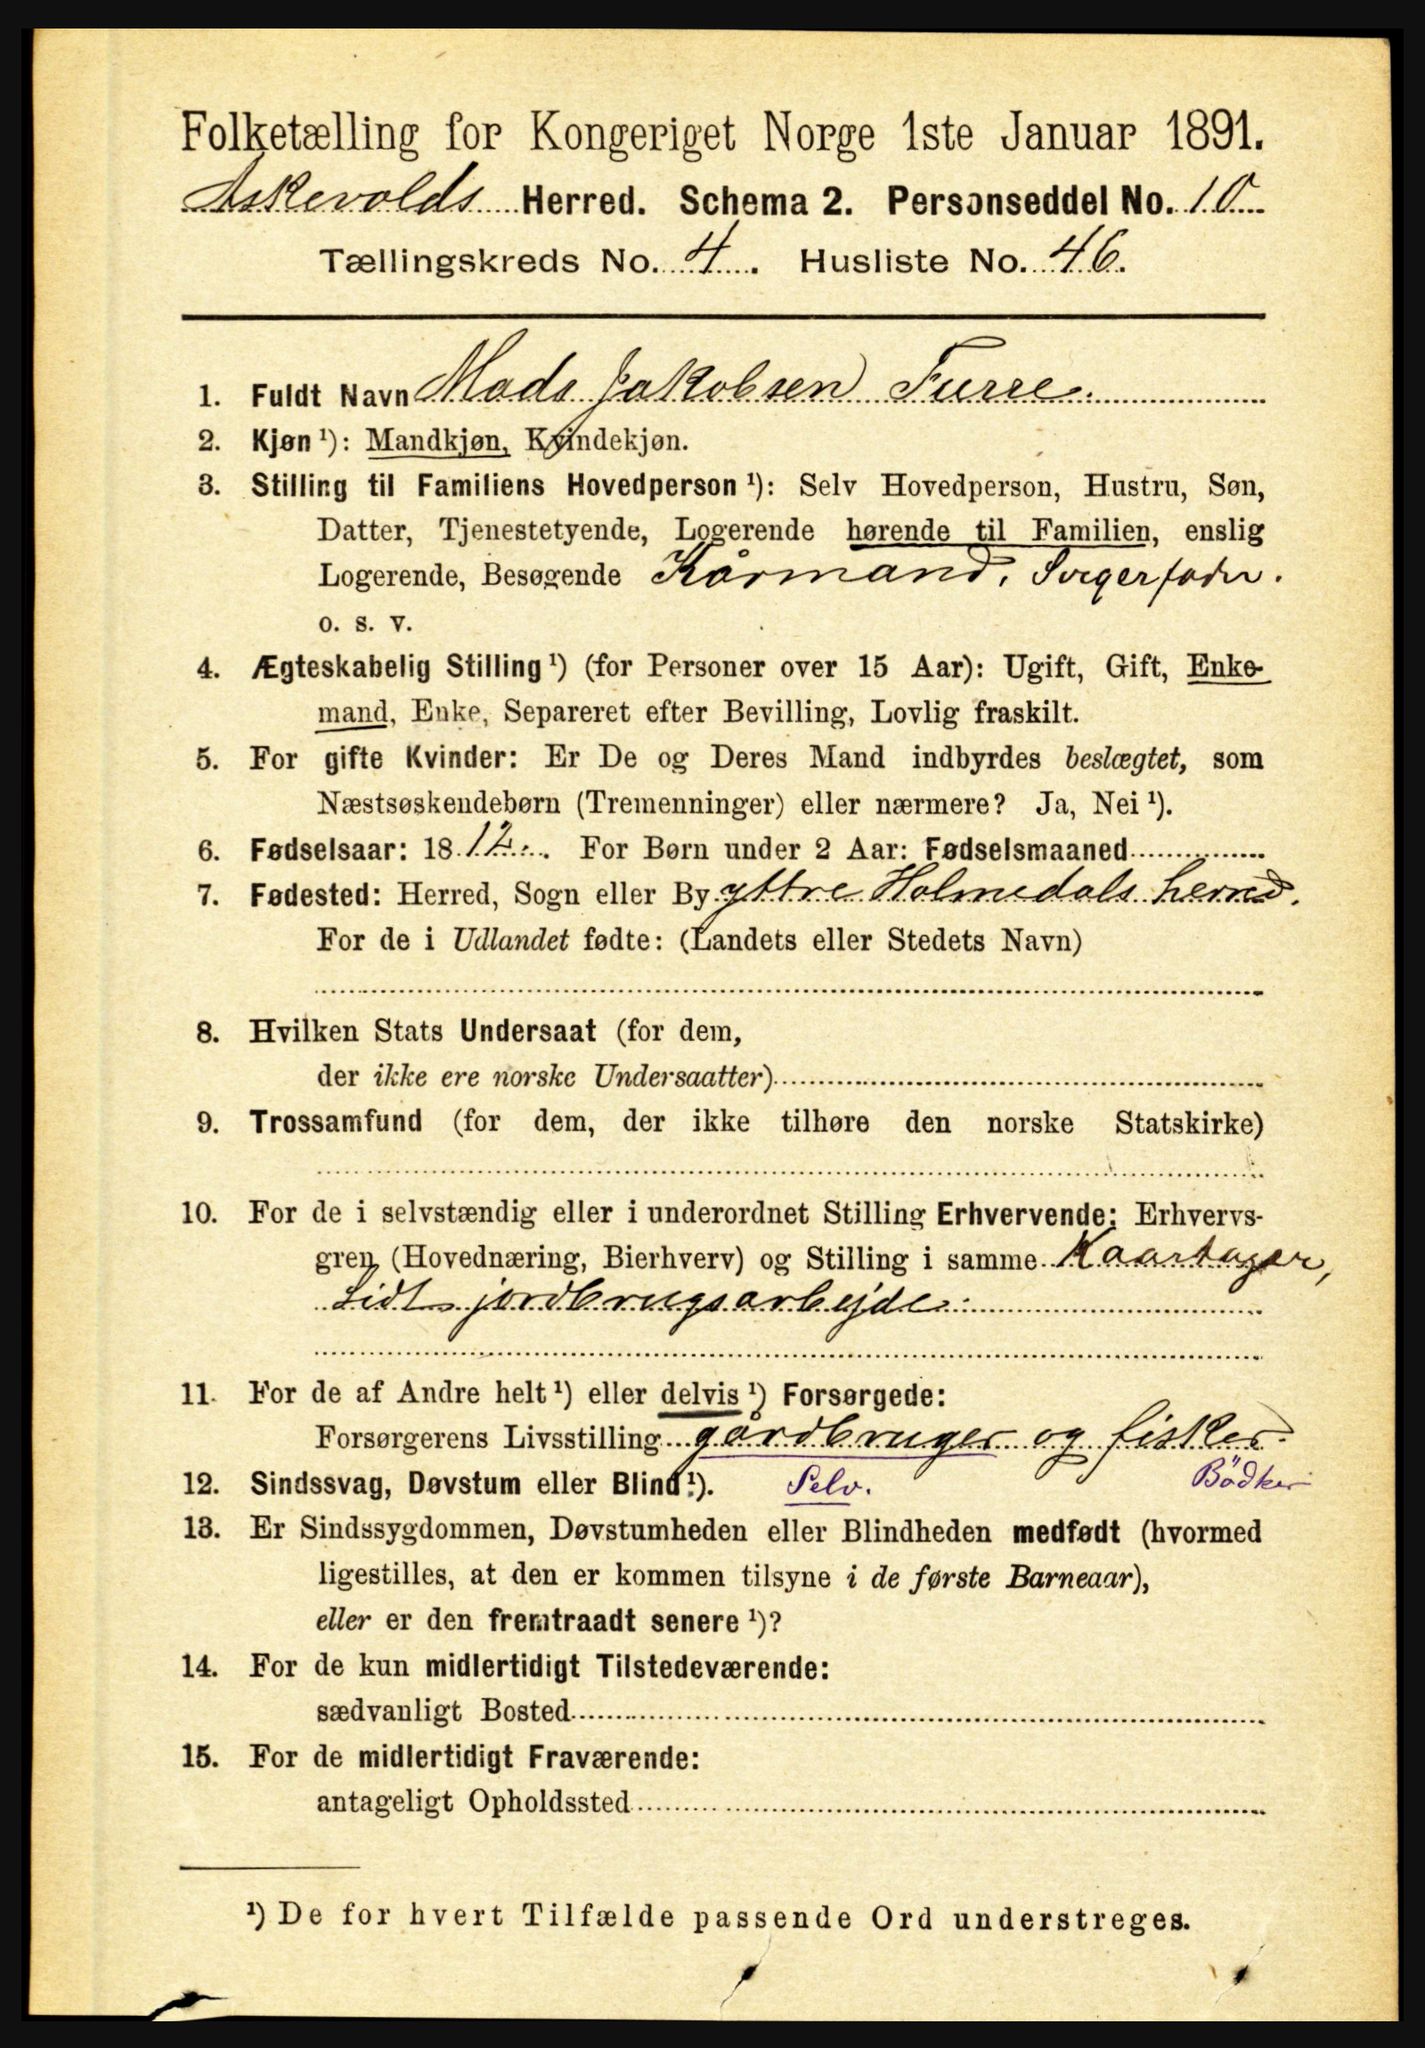 Folketælling for Kongeriget Norge 1ste Januar 1891.
Askevolds Herred. Schema 2. Personseddel No. 10
Tællingskreds No. 4. Husliste No. 46.
1. Fuldt Navn Mads Jakobsen Furre.
2. Kjøn ¹): Mandkjøn, Kvindekjøn.
3. Stilling til Familiens Hovedperson ¹): Selv Hovedperson, Hustru, Søn,
Datter, Tjenestetyende, Logerende hørende til Familien, enslig
Logerende, Besøgende Kårmand, Svigerfader.
o. s. v.
4. Ægteskabelig Stilling ¹) (for Personer over 15 Aar): Ugift, Gift, Enke-
mand, Enke, Separeret efter Bevilling, Lovlig fraskilt.
5. For gifte Kvinder: Er De og Deres Mand indbyrdes beslægtet, som
Næstsøskendebørn (Tremenninger) eller nærmere? Ja, Nei ¹).
6. Fødselsaar: 1812. For Børn under 2 Aar: Fødselsmaaned
7. Fødested: Herred, Sogn eller By yttre Holmedals herred.
For de i Udlandet fødte: (Landets eller Stedets Navn)
8. Hvilken Stats Undersaat (for dem,
der ikke ere norske Undersaatter)
9. Trossamfund (for dem, der ikke tilhøre den norske Statskirke)
10. For de i selvstændig eller i underordnet Stilling Erhvervende: Erhvervs-
gren (Hovednæring, Bierhverv) og Stilling i samme Kaartager,
Lidt jordbrugsarbejde.
11. For de af Andre helt ¹) eller delvis ¹) Forsørgede:
Forsørgerens Livsstilling gårdbruger og fisker.
12. Sindssvag, Døvstum eller Blind ¹). Selv. Bödker
13. Er Sindssygdommen, Døvstumheden eller Blindheden medfødt (hvormed
ligestilles, at den er kommen tilsyne i de første Barneaar),
eller er den fremtraadt senere ¹)?
14. For de kun midlertidigt Tilstedeværende:
sædvanligt Bosted
15. For de midlertidigt Fraværende:
antageligt Opholdssted
¹) De for hvert Tilfælde passende Ord understreges.